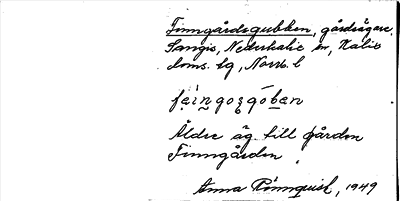 Finngårdsgubben, gårdsägare,
Sangis, Nederkalix sn, Kalix
doms. lg, Norrb. l
Äldre äg. till gården
Finngården.
Anna Rönnquist, 1949